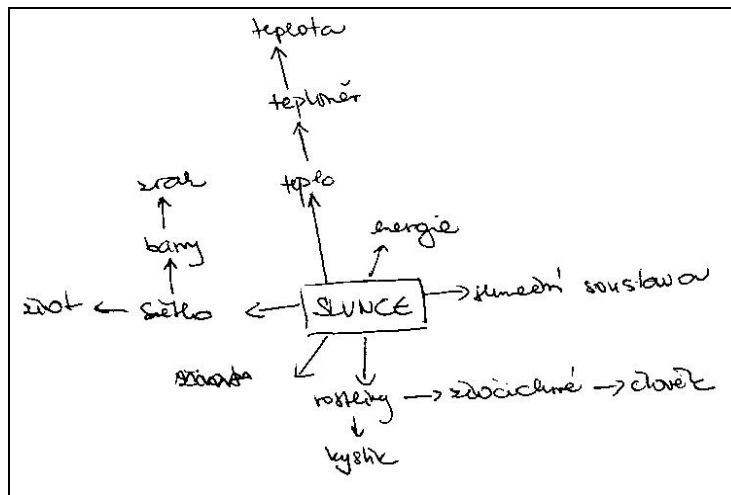 teplota
teploměr
teplo
zrak
barvy
energie
život
světlo
SLUNCE
sluneční soustava
rostliny
živočichové
člověk
kyslík